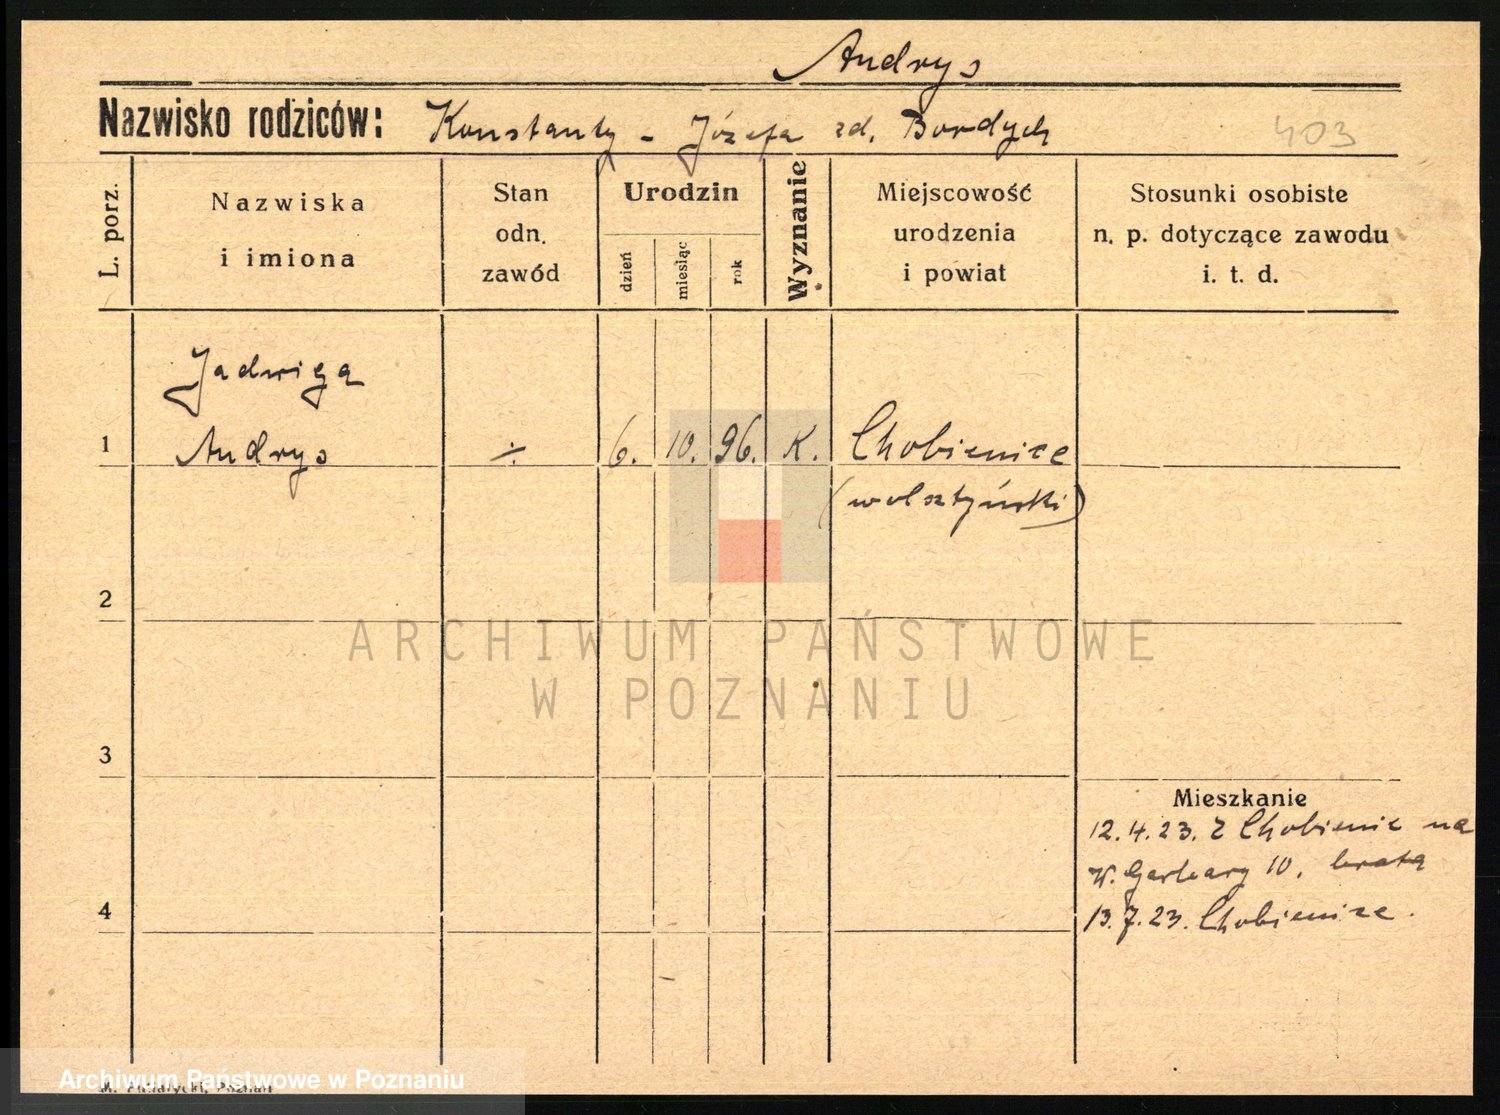 Andrys
Nazwisko rodziców: Konstanty - Józefa zd. Bordych 403
L. porz.
Nazwiska
i imiona
Stan
odn.
zawód
Urodzin
dzień
miesiąc
rok
Wyznanie
Miejscowość
urodzenia
i powiat
Stosunki osobiste
n. p. dotyczące zawodu
i. t. d.
Jadwiga
1 Andrys ÷ 6. 10. 96. K. Chobienice
(wolsztyński)
2
ARCHIWUM PAŃSTWOWE
W POZNANIU
3
Mieszkanie
12.4.23. z Chobienic na
W. Garbary 10.
4 13.7.23. Chobienice.
Archiwum Państwowe w Poznaniu